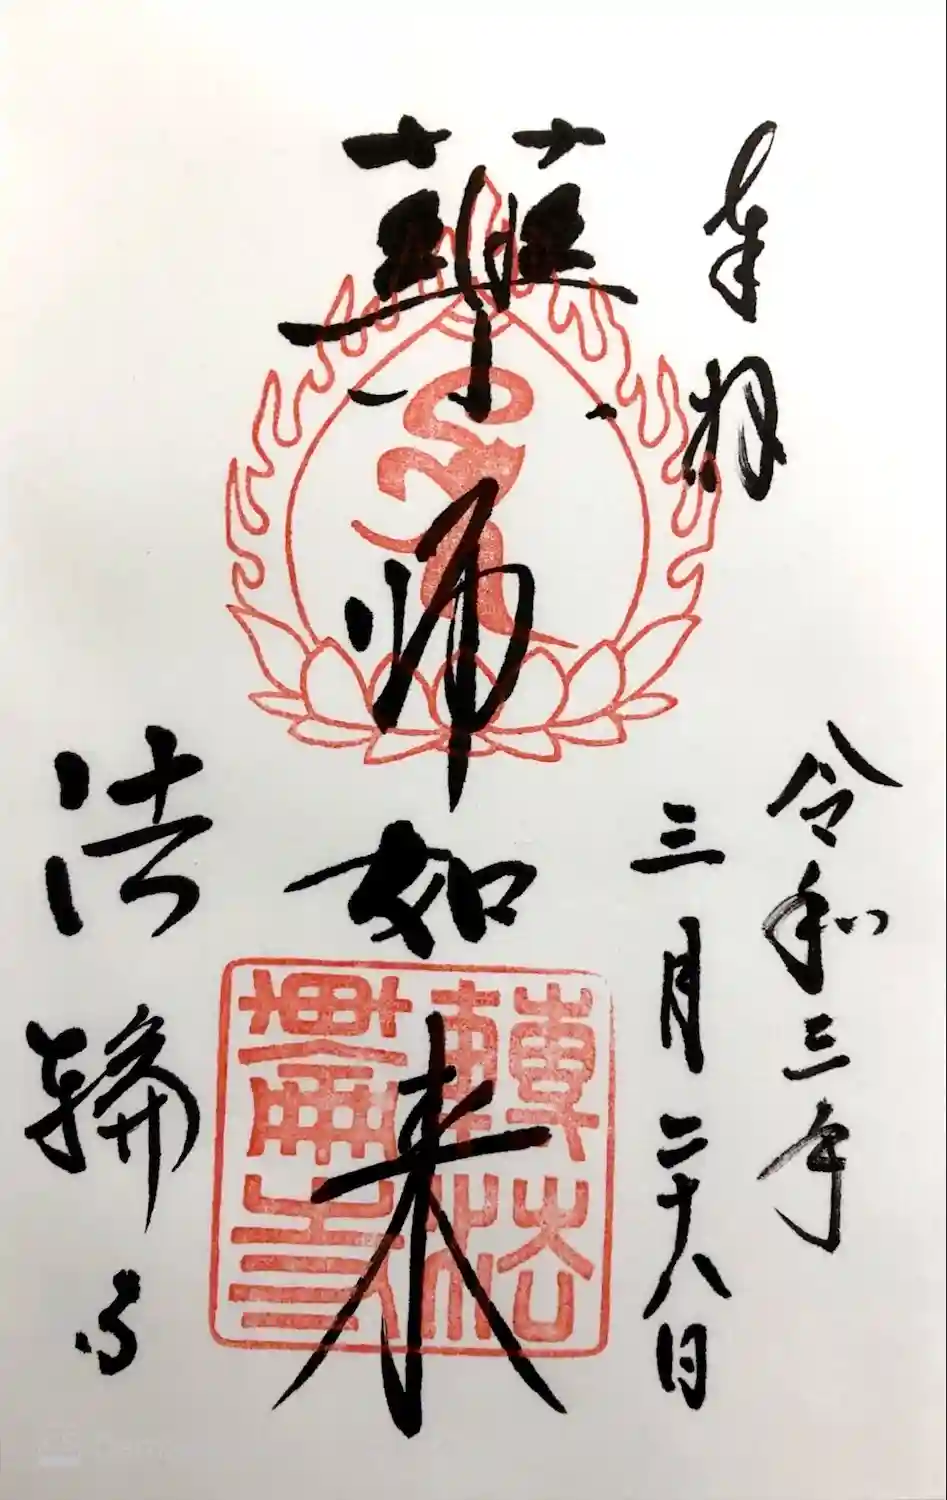 奉拝
令和三年
三月二十八日
薬師如来
轉法
輪寺
法輪寺